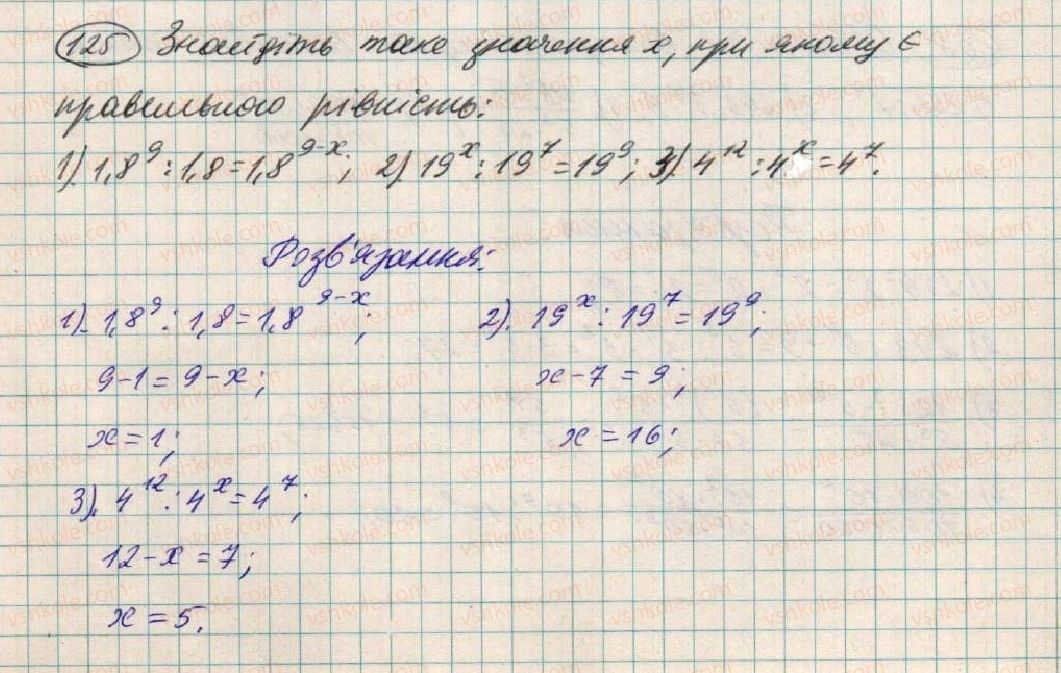 125 Знайдіть таке значення x, при якому є
правильною рівність:
1). 1,8⁹ : 1,8 = 1,8⁹⁻ˣ; 2). 19ˣ : 19⁷ = 19⁹; 3). 4¹² : 4ˣ = 4⁷.
Розв'язання:
1). 1,8⁹ : 1,8 = 1,8⁹⁻ˣ; 2). 19ˣ : 19⁷ = 19⁹;
9 - 1 = 9 - x; x - 7 = 9;
x = 1; x = 16;
3). 4¹² : 4ˣ = 4⁷;
12 - x = 7;
x = 5.